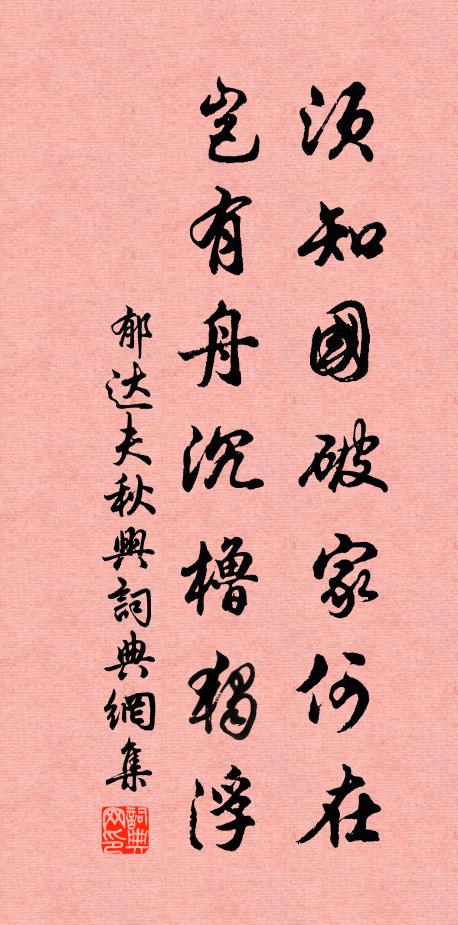 須知國破家何在
豈有舟沉櫓獨浮
郁达夫秋興詞典網集
詞典网印